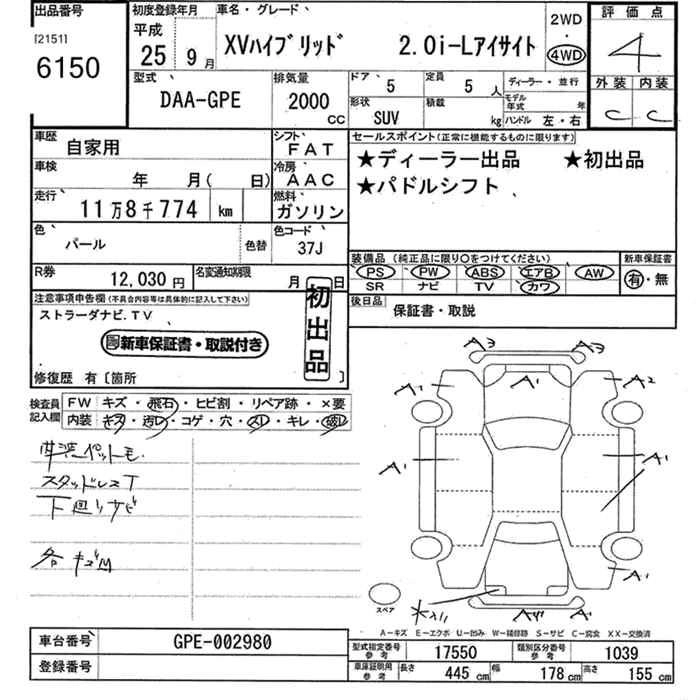 出品番号
[2151]
6150
初度登録年月
平成
25 9月
車名・グレード
XVハイブリッド 2.0i-Lアイサイト
2WD
・
4WD
評価点
4
外装 内装
C C
型式
DAA-GPE
排気量
2000
CC
ドア 5
定員 5 人
ディーラー・並行
形状
SUV
積載
kg
モデル年式 年
ハンドル 左・右
車歴
自家用
シフト
FAT
車検
年 月( 日)
冷房
AAC
走行
11万8千774 km
燃料
ガソリン
色
パール
色替
色コード
37J
R券
12,030円
名変通知期限
月 日
セールスポイント(正常に機能するものに限ります)
★ディーラー出品 ★初出品
★パドルシフト
装備品(純正品に限り○をつけてください)
PS PW ABS エアB AW
SR ナビ TV カワ
新車保証書
有・無
後日品
保証書・取説
注意事項申告欄(不具合内容等は具体的に記入して下さい)
ストラーダナビ.TV
新車保証書・取説付き
初出品
修復歴 有〔箇所 〕
検査員記入欄
FW キズ・飛石・ヒビ割・リペア跡・×要
内装 キズ・汚レ・コゲ・穴・スレ・キレ・破レ
スタッドレスT
下廻りサビ
各キズ凹
A3 A3
A1 A1 A2
A1 A1
A1
スペア
A−キズ E−エクボ U−凹み W−補修跡 S−サビ C−腐食 XX−交換済
車台番号
GPE-002980
登録番号
型式指定番号 参考
17550
類別区分番号 参考
1039
車庫証明用 参考
長さ 445 cm
幅 178 cm
高さ 155 cm